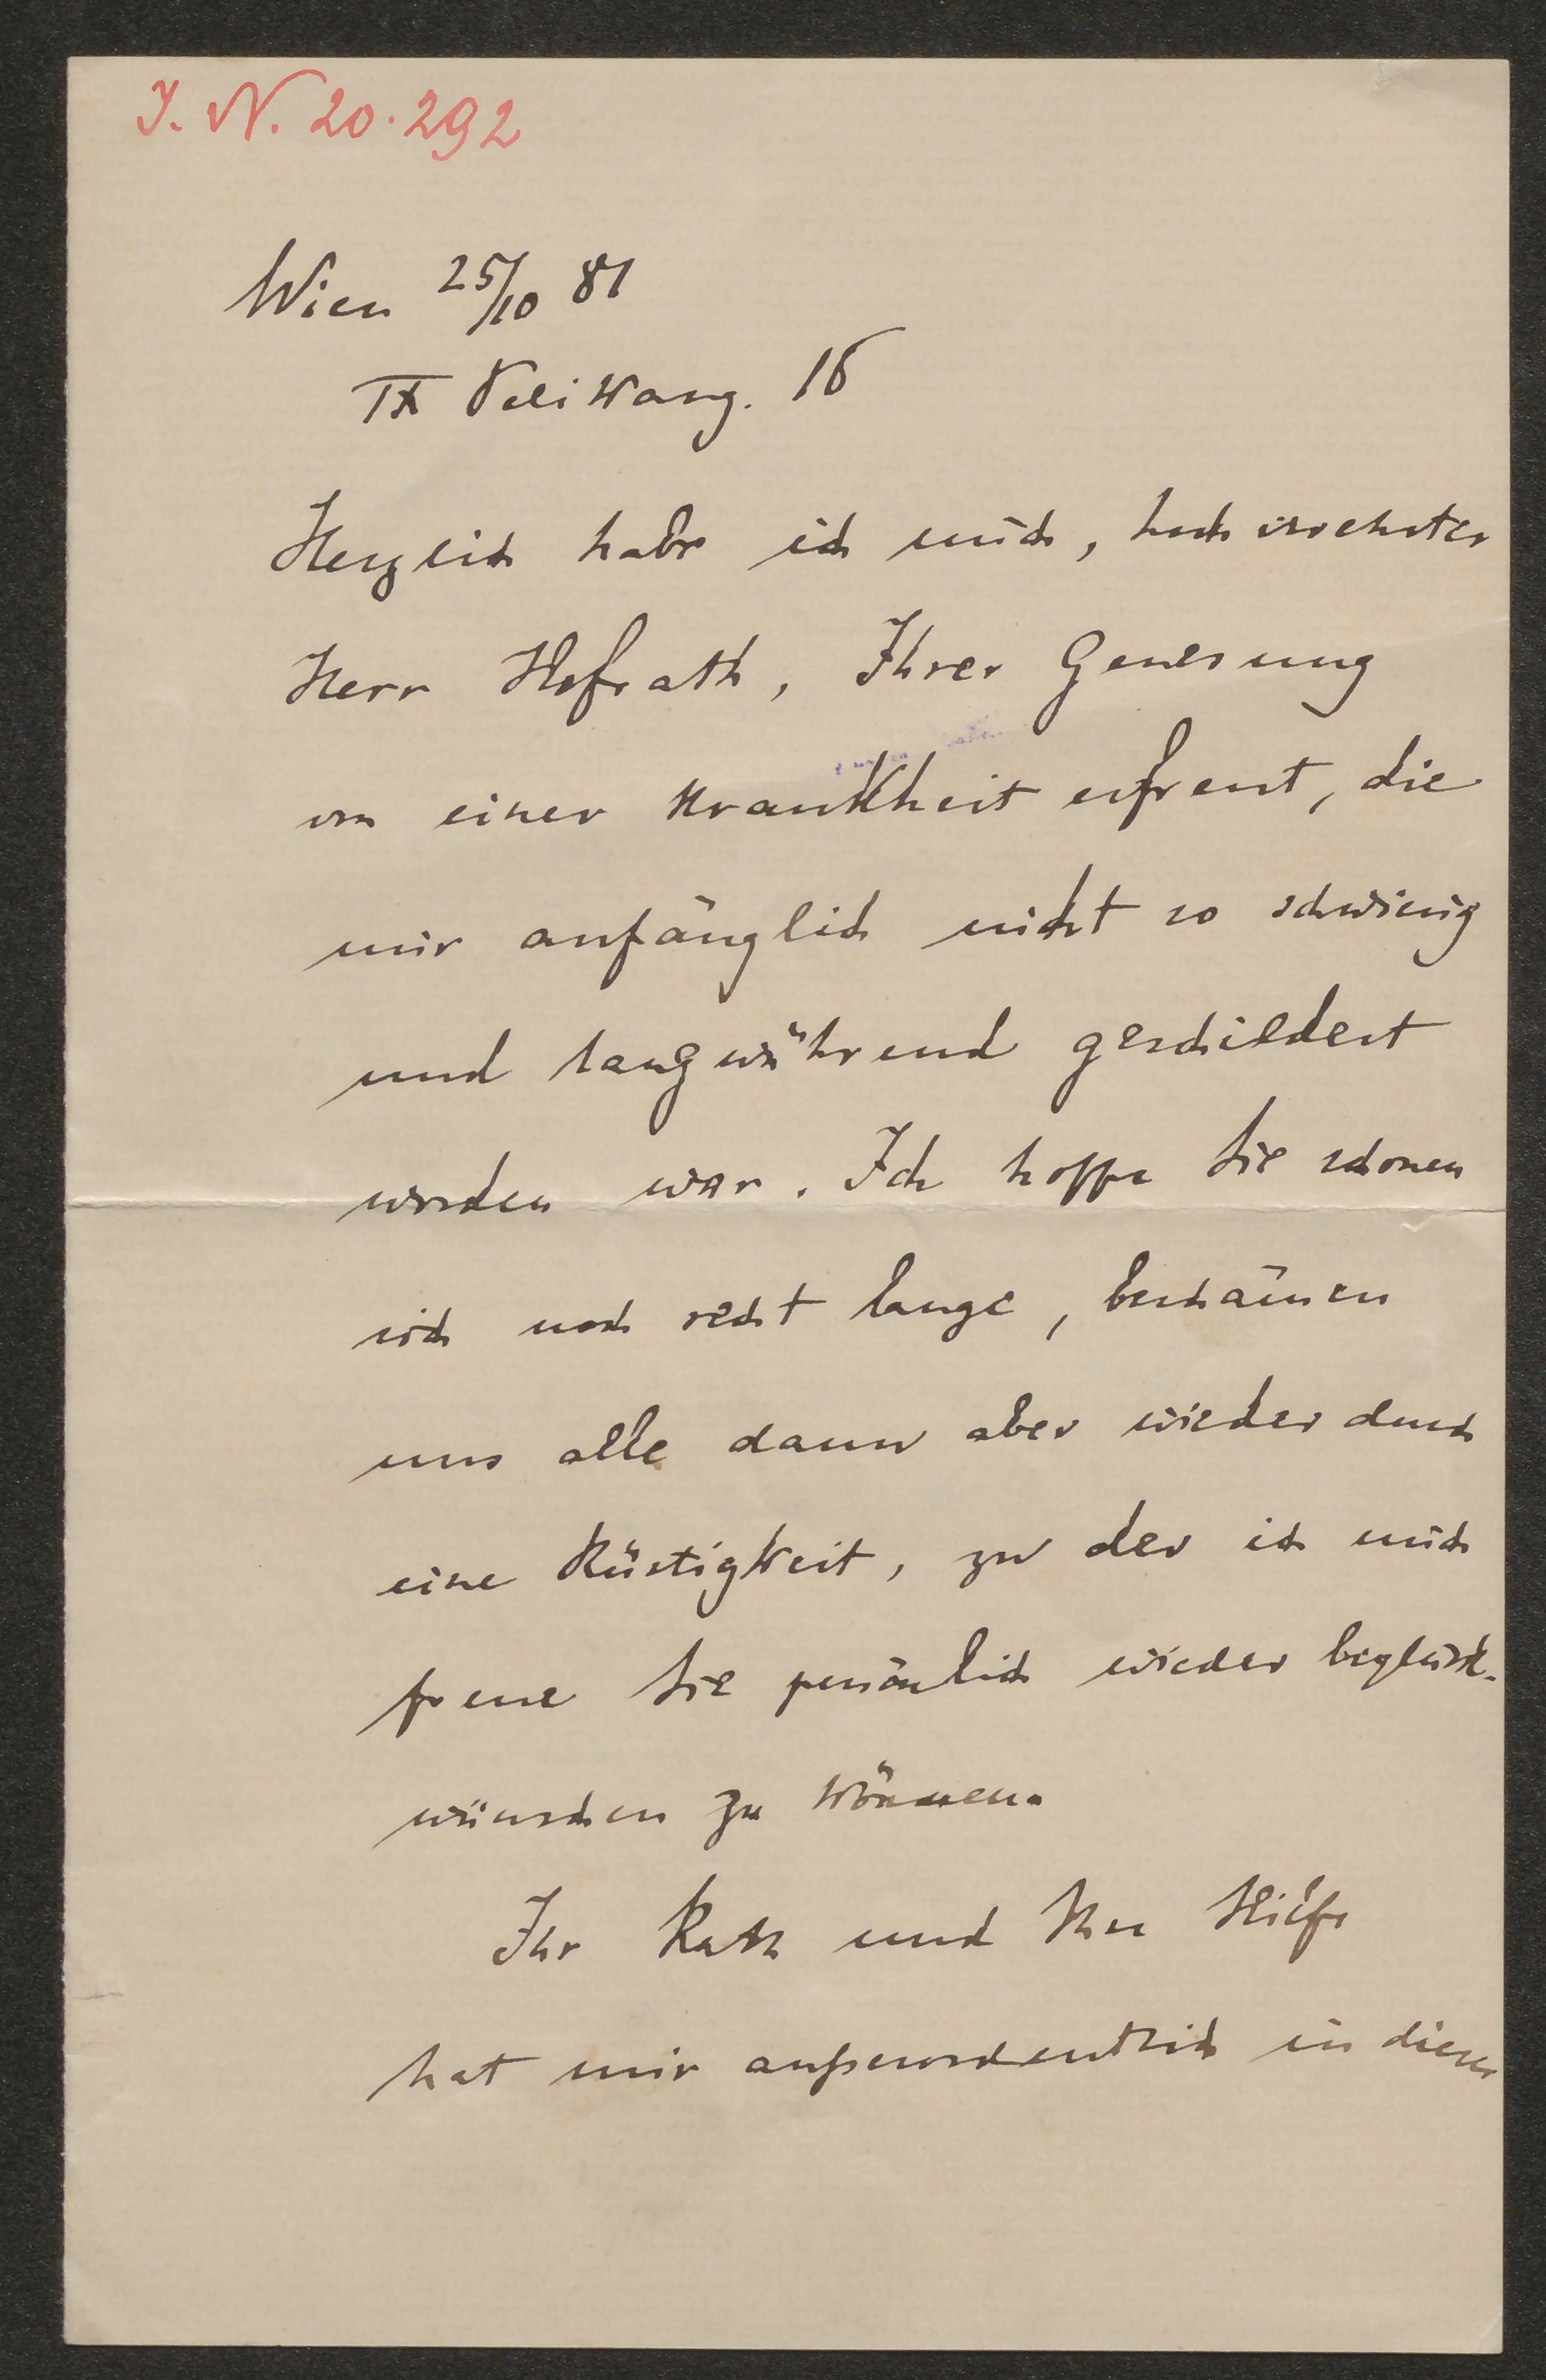 I. N. 20.292
Wien 25/10 81
IX Pelikang. 16
Herzlich habe ich mich, hochverehrter
Herr Hofrath, Ihrer Genesung
von einer Krankheit erfreut, die
mir anfänglich nicht so schwierig
und langwährend geschildert
worden war. Ich hoffe Sie schonen
sich noch recht lange, beschämen
uns alle dann aber wieder durch
eine Rüstigkeit, zu der ich mich
freue Sie persönlich wieder beglück-
wünschen zu können.
Ihr Rath und Ihre Hilfe
hat mir außerordentlich in dieser